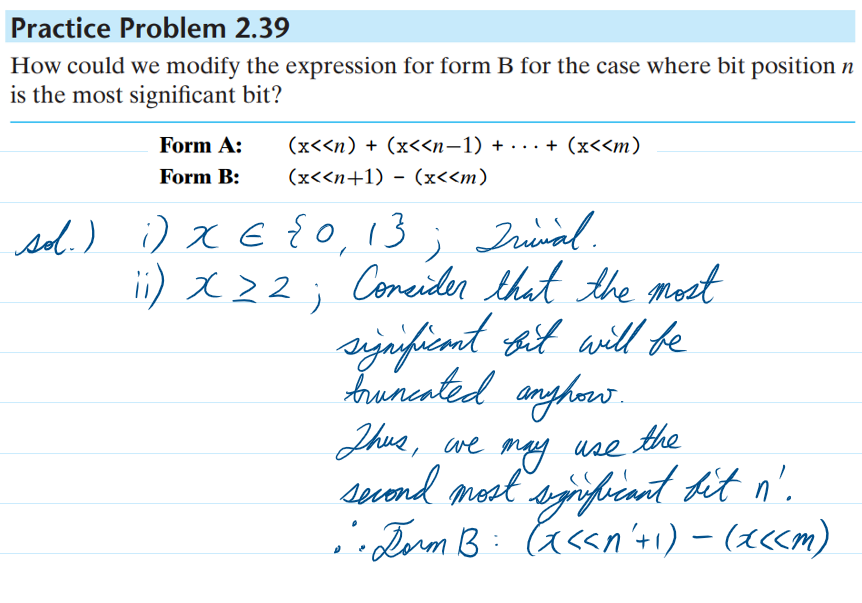 Practice Problem 2.39
How could we modify the expression for form B for the case where bit position n
is the most significant bit?
Form A: (x<<n) + (x<<n−1) + · · · + (x<<m)
Form B: (x<<n+1) − (x<<m)
sol.) i) x ∈ {0, 1} ; Trivial.
ii) x ≥ 2 ; Consider that the most
significant bit will be
truncated anyhow.
Thus, we may use the
second most significant bit n'.
∴ Form B : (x<<n'+1) − (x<<m)